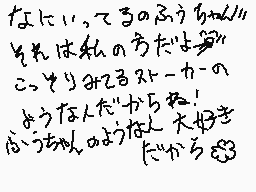 なにいってるのふぅちゃん!!
それは私の方だよ
こっそりみてるストーカーの
ようなんだからね!
ふうちゃんのようなん大好き
だから